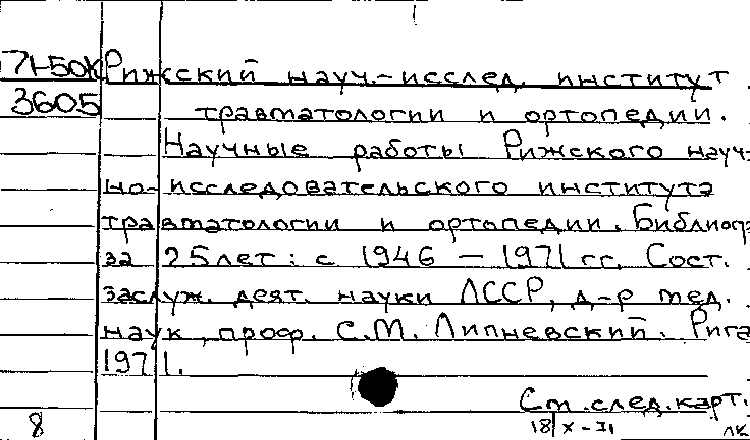 71-50К Рижский науч.-исслед. институт
3605 травматологии и ортопедии.
Научные работы Рижского науч-
но-исследовательского института
травматологии и ортопедии. Библиогр.
за 25 лет: с 1946 — 1971 гг. Сост.
заслуж. деят. науки ЛССР, д-р мед.
наук, проф. С.М. Липневский. Рига
1971.
См. след. карт.
8 18/X-71 лк